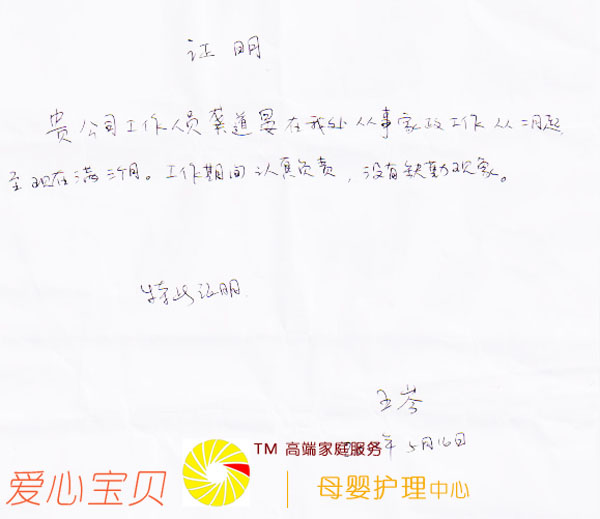 证明
贵公司工作人员蔡道晏在我处从事家政工作从二月起
至现在满三个月。工作期间认真负责，没有缺勤现象。
特此证明
王岑
年5月16日
TM 高端家庭服务
爱心宝贝
母婴护理中心